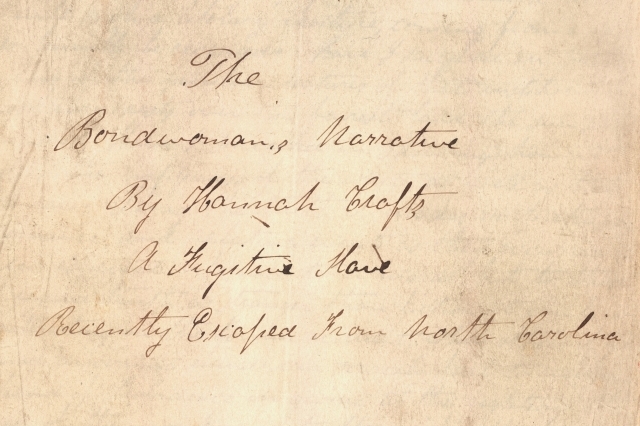 The
Bondwoman's Narrative
By Hannah Crafts
A Fugitive Slave
Recently Escaped From North Carolina